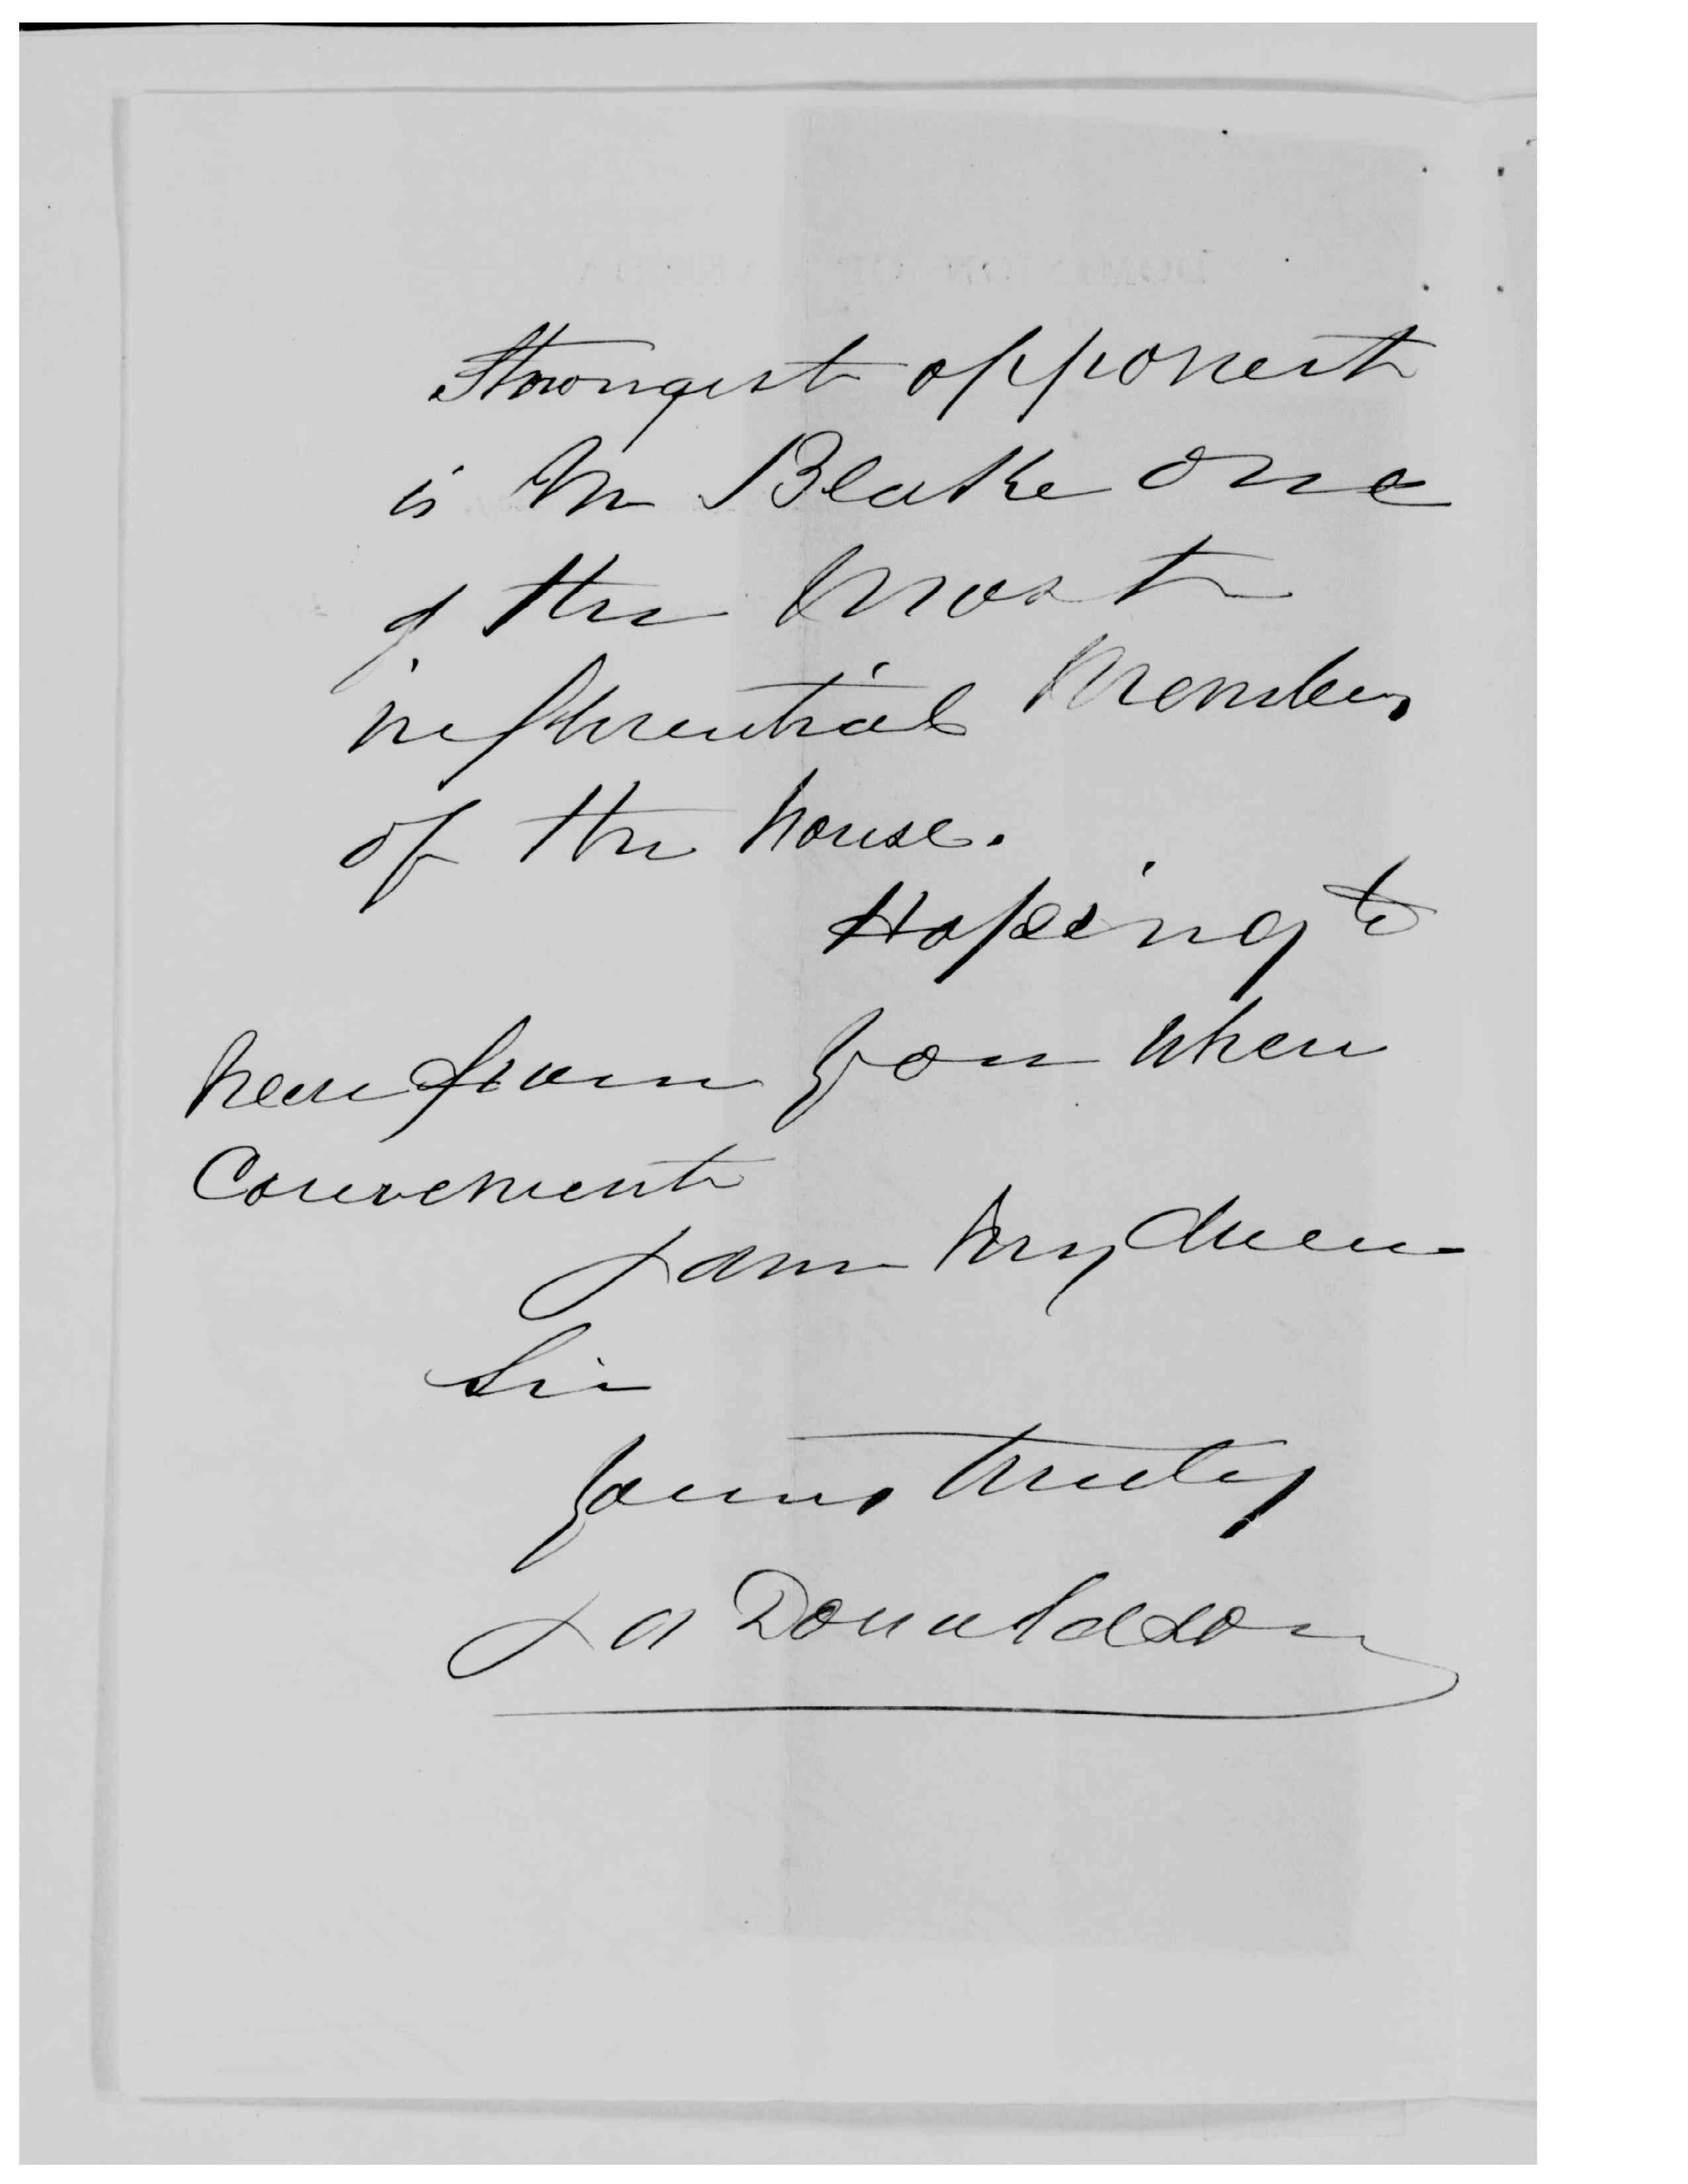 Strongest opponent
is Mr Blake one
of the most
influential Members
of the house.
Hopeing to
hear from you when
Convenient
I am My dear
Sir
Yours truly
J A Donaldson